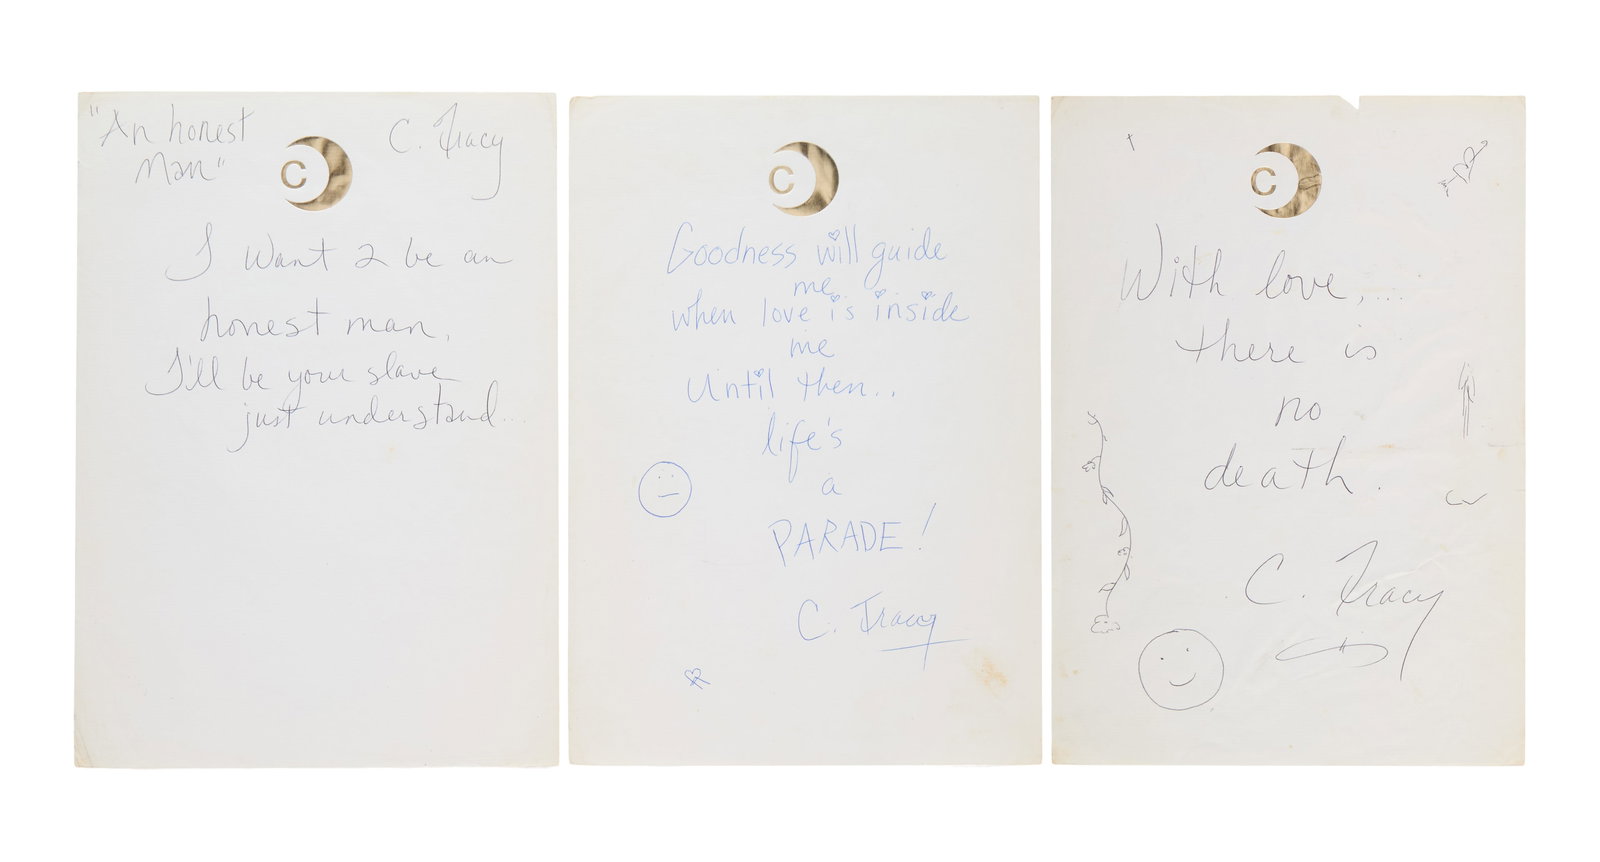 "An honest
Man"
C. Tracy
C
I want 2 be an
honest man,
I'll be your slave
just understand....
C
Goodness will guide
me
when love is inside
me
Until then..
life's
a
PARADE!
C. Tracy
C
With love,...
there is
no
death.
C. Tracy